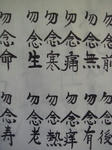 勿念前
勿念後
勿念無
勿念有
勿念痛
勿念痒
勿念寒
勿念熱
勿念生
勿念老
勿念命
勿念寿